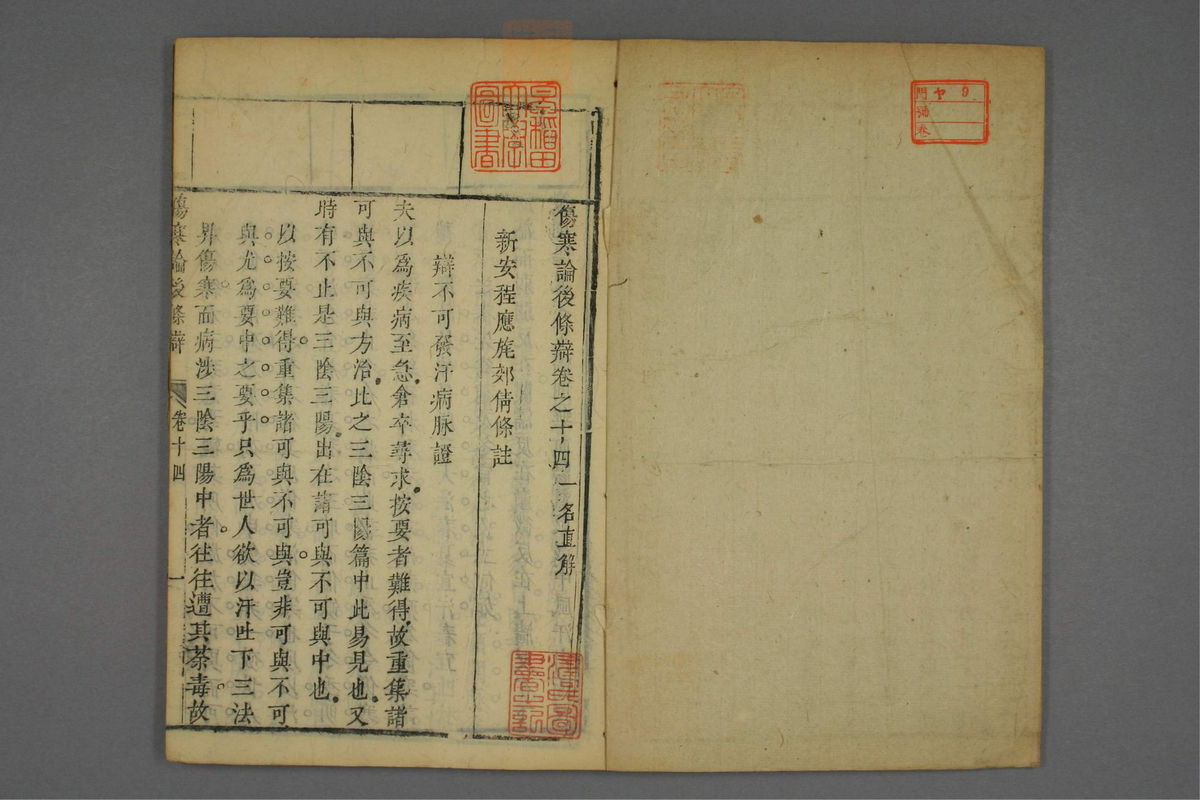 門 ヤ 9
號
卷
早稲田大學圖書
傷寒論後條辯卷之十四 一名直解
新安程應旄郊倩條註
辯不可發汗病脉證
夫以爲疾病至急倉卒尋求按要者難得故重集諸
可與不可與方治比之三陰三陽篇中此易見也又
時有不止是三陰三陽出在諸可與不可與中也
以按要難得重集諸可與不可與豈非可與不可
與尤爲要中之要乎只爲世人欲以汗吐下三法
界傷寒而病涉三陰三陽中者往往遭其荼毒故
傷寒論後條辯 卷十四 一